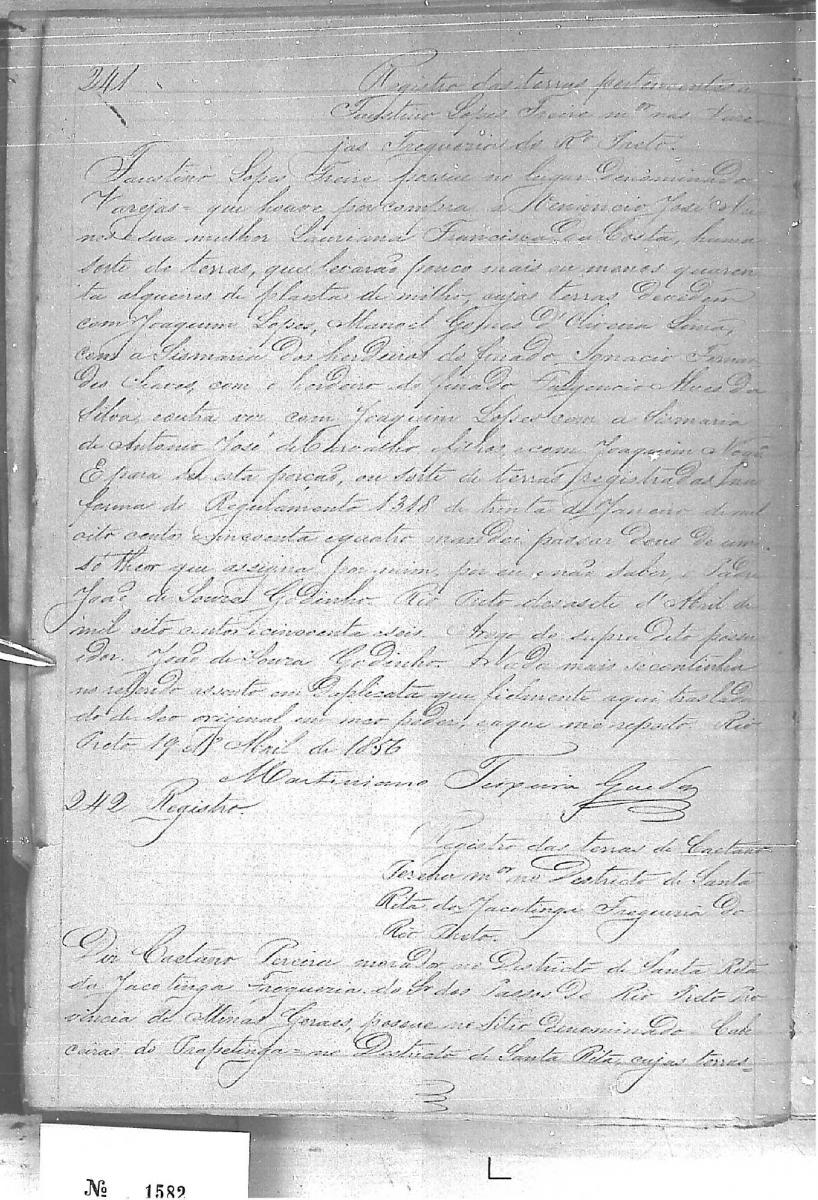 241
Registro das terras pertencentes a
Faustino Lopes Freire m.or nas Vare
jas Freguezia do R.o Preto.
Faustino Lopes Freire possue no lugar denominado
Varejas = que houve por compra a Venancio José
sua mulher Lauriana Francisca da Costa, huma
sorte de terras, que levarão pouco mais ou menos quaren
ta alqueires de planta de milho, cujas terras devedem
com Joaquim Lopes, Manoel Gomes d'Oliveira Lima,
com a Sismaria dos herdeiros do finado Ignacio Fernan
des Chaves, com o herdeiro do finado Fulgencio Alves da
Silva, e outra vez com Joaquim Lopes com a Sismaria
de Antonio José de Carvalho, e com Joaquim
E para ser esta porcão, ou sorte de terras registradas na
forma do Regulamento 1318 de trinta de Janeiro de mil
oito centos e cincoenta e quatro mandei passar dous de um
só theor que assigna por mim, por eu não saber, o Padre
João de Souza Godinho. Rio Preto dezasete d'Abril de
mil oito centos e cincoenta e seis. A rogo do supra dito possu
idor. João de Souza Godinho. E nada mais se continha
no referido assento em Duplicata que fielmente aqui traslada
do de seo original em meo poder, e a que me reporto. Rio
Preto 19 d'Abril de 1856
Martiniano Teixeira Guedes
242 Registro.
Registro das terras de Caetano
Pereira m.or no Destricto de Santa
Rita da Jacotinga Freguezia do
Rio Preto.
Diz Caetano Pereira morador no Districto de Santa Rita
da Jacotinga Freguezia do Sr dos Passos do Rio Preto Pro
vincia de Minas Geraes, possue no Sitio denominado = Cab
ceiras do Prapetinga = no Destricto de Santa Rita, cujas terras
Nº 1582